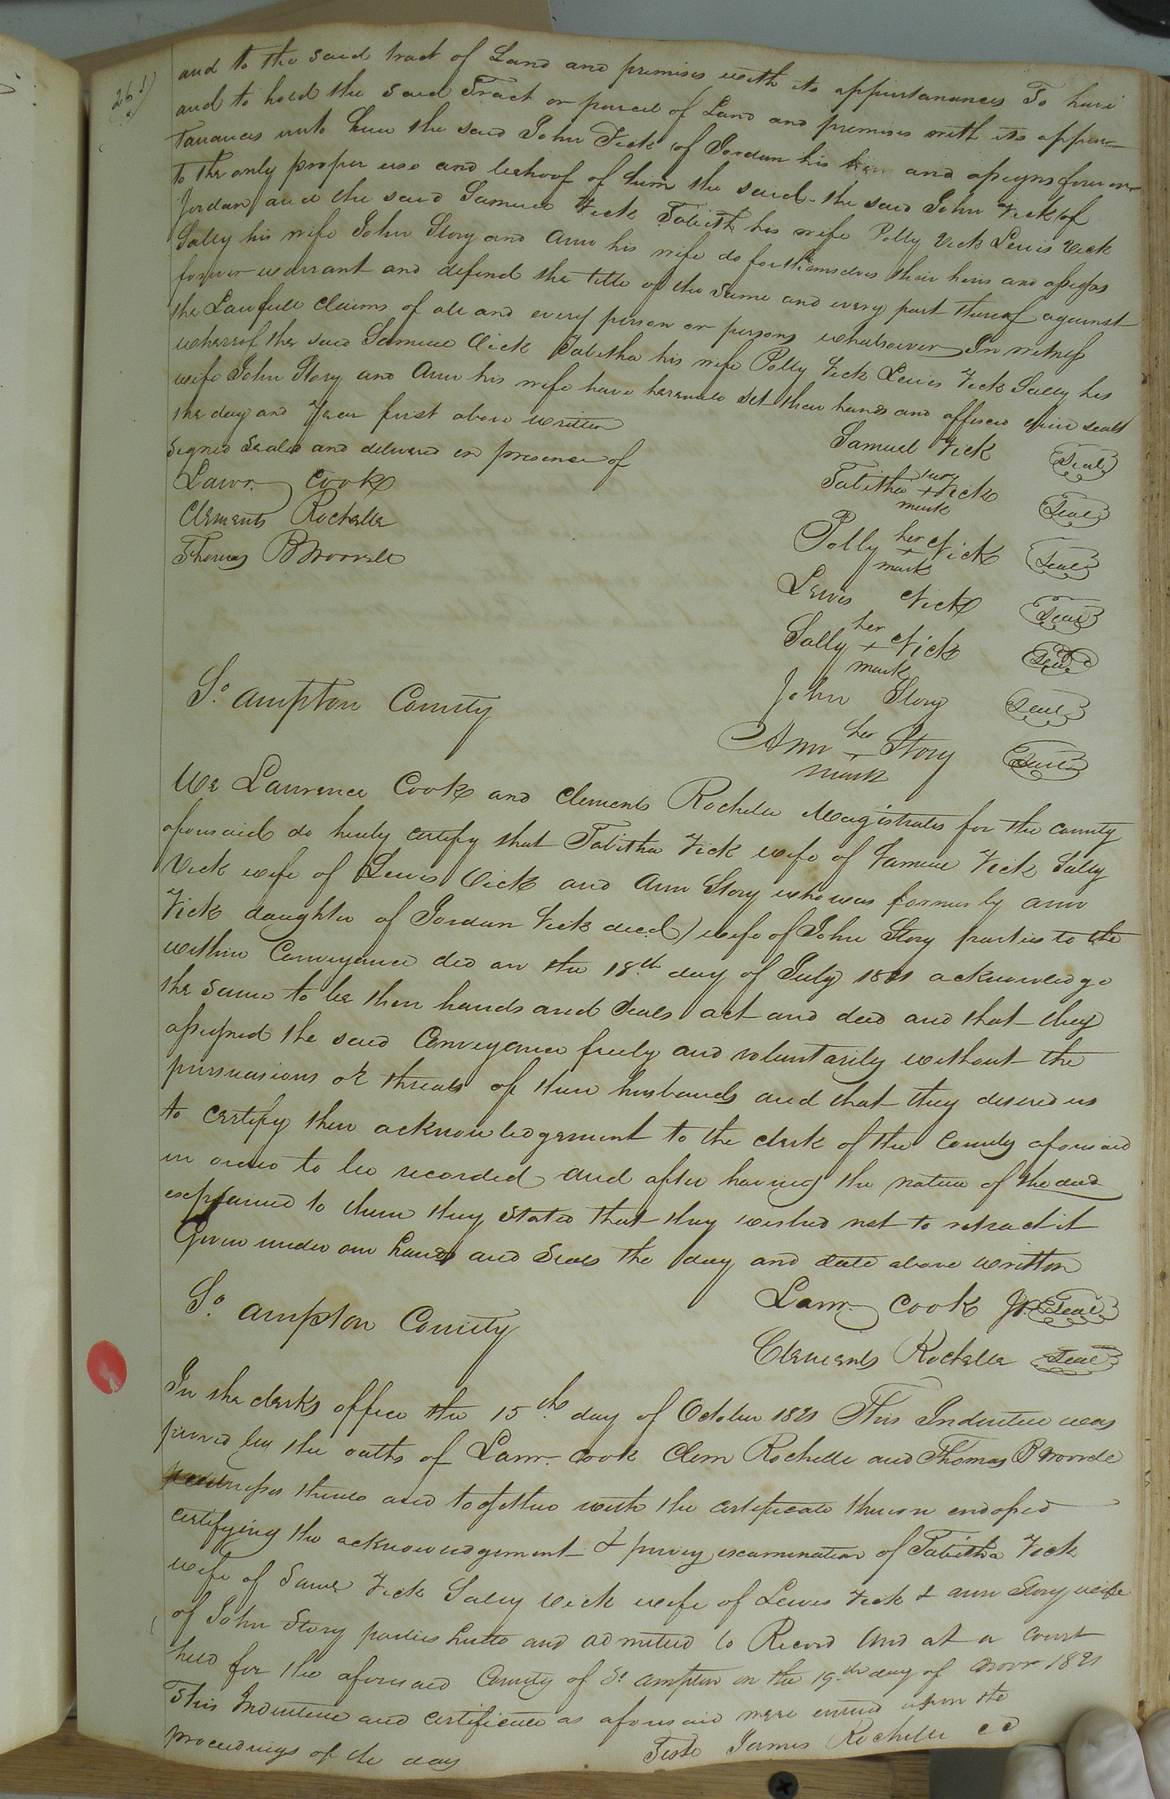 261)
and to the said tract of Land and premises with its appurtanances To have
and to hold the said Tract or parcel of Land and premises with its appur=
tanances unto him the said John Vick of Jordan his heirs and assigns forever
to the only proper use and behoof of him the said. the said John Vick of
Jordan, and the said Samuel Vick Tabith his wife Polly Vick Lewis Vick
Sally his wife John Story and Ann his wife do for themselves their heirs and assigns
forever warrant and defend the title of the same and every part thereof against
the Lawfull Claims of all and every person or persons whatsoever In witness
whereof the said Samuel Vick Tabitha his wife Polly Vick Lewis Vick Sally his
wife John Story and Ann his wife have hereunto set their hands and affixed their seals
the day and Year first above written
Signed Sealed and delivered in presence of
Lawr. Cook
Clements Rochelle
Thomas B
Samuel Vick Seal
Tabitha her + mark Vick Seal
Polly her + mark Vick Seal
Lewis Vick Seal
Sally her + mark Vick Seal
John Story Seal
Ann her mark Story Seal
So. ampton County
We Laurence Cook and Clements Rochelle Magistrates for the county
aforesaid do hereby certify that Tabitha Vick wife of Samuel Vick Sally
Vick wife of Lewis Vick and Ann Story who was formerly ann
Vick daughter of Jordan Vick decd.) wife of John Story parties to the
within Conveyance did on the 18th day of July 1821 acknowledge
the same to be their hands and Seals act and deed and that they
assigned the said Conveyance freely and voluntarily without the
pursuasions or threats of their husbands and that they desired us
to certify their acknowledgement to the clerk of the County aforesaid
in order to be recorded and after having the nature of the deed
explained to them they stated that they wished not to retract it
Given under our hands and Seals the day and date above written
Lawr. Cook Jr. Seal
Clements Rochelle Seal
So. ampton County
In the clerks office the 15th day of October 1821 This Indenture was
proved by the oaths of Lawr. Cook Clem Rochelle and Thomas B
witnesses thereto and together with the certificate thereon endorsed
certifying the acknowledgement & privy examination of Tabitha Vick
wife of Saml Vick Sally Vick wife of Lewis Vick & ann Story wife
of John Story parties hereto and admitted to Record And at a court
held for the aforesaid County of So. ampton on the 19th day of Novr 1821
This Indenture and certificate as aforesaid were entered upon the
proceedings of the day
Teste James Rochelle cc